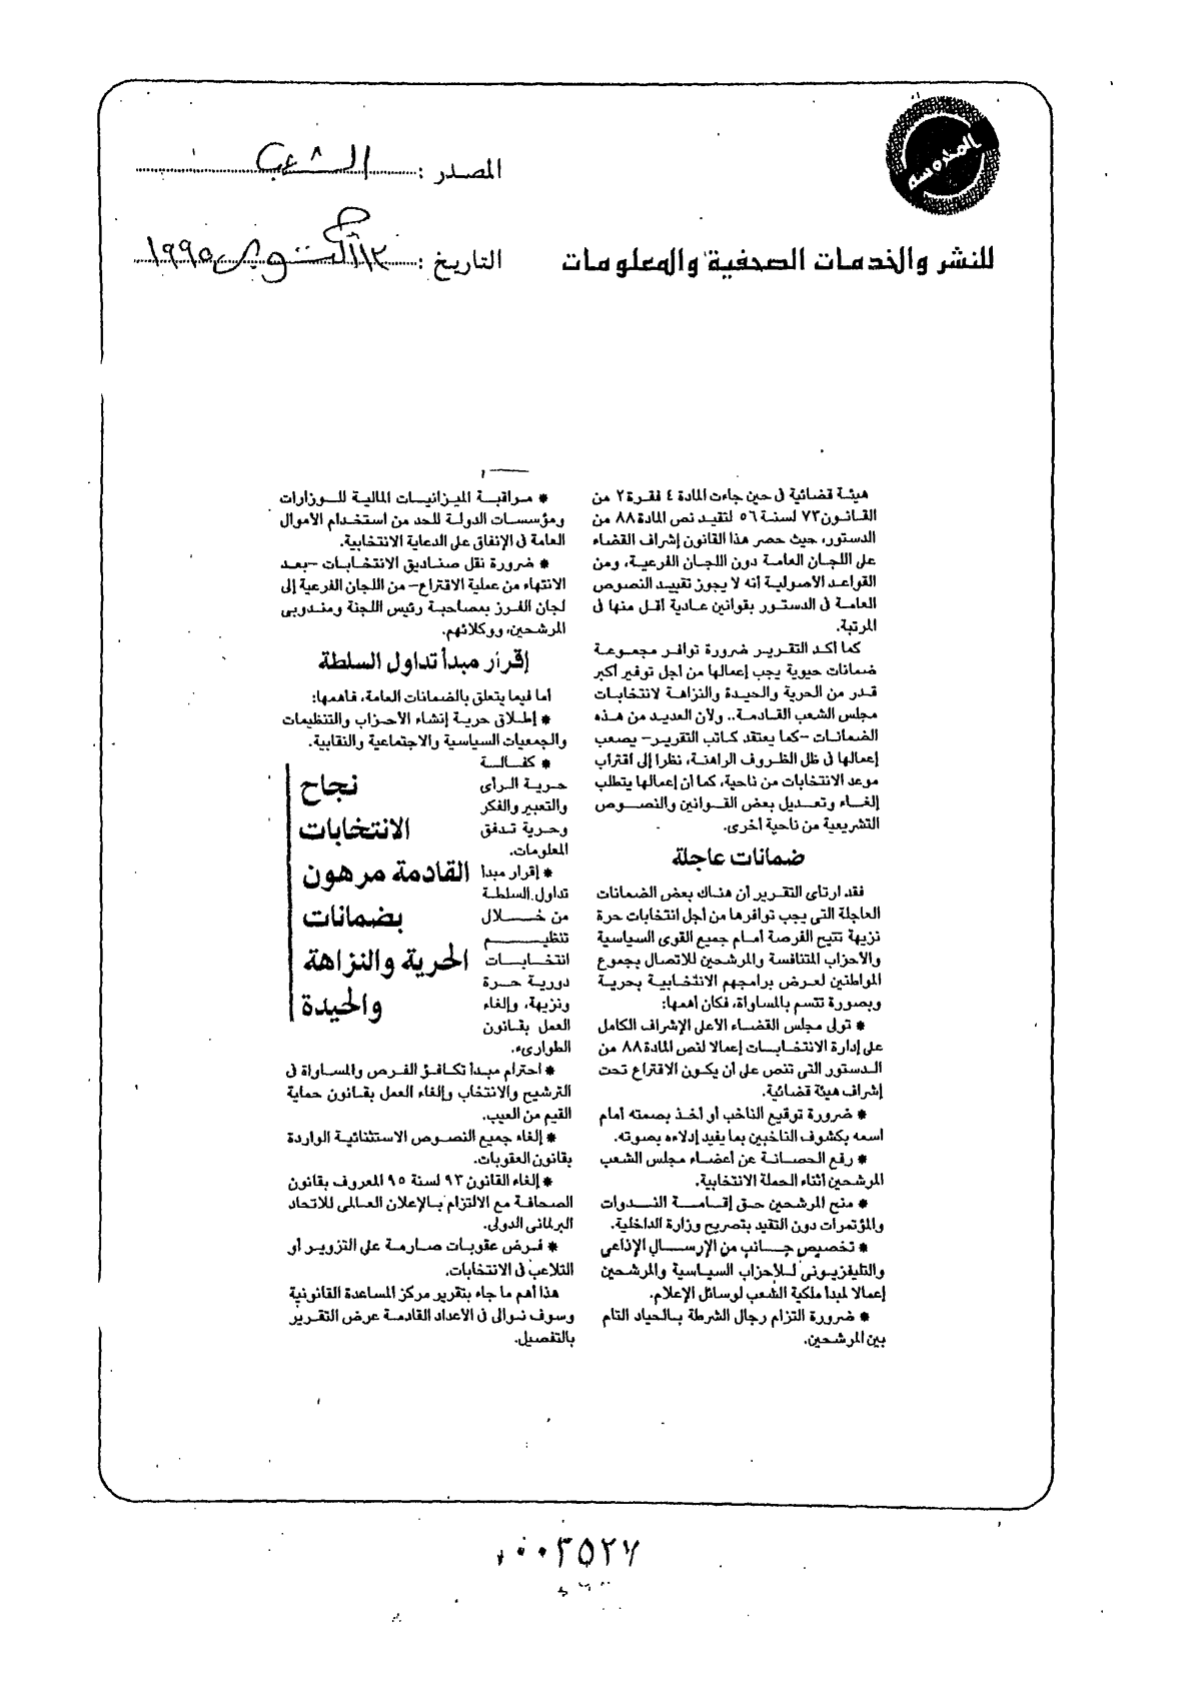 المحروسة
للنشر والخدمات الصحفية والمعلومات
المصدر : الشعب
التاريخ : ١٣ أكتوبر ١٩٩٥
هيئة قضائية فى حين جاءت المادة ٤ فقرة ٢ من
القانون ٧٣ لسنة ٥٦ لتقيد نص المادة ٨٨ من
الدستور، حيث حصر هذا القانون إشراف القضاء
على اللجان العامة دون اللجان الفرعية، ومن
القواعد الأصولية أنه لا يجوز تقييد النصوص
العامة فى الدستور بقوانين عادية أقل منها فى
المرتبة.
كما أكد التقرير ضرورة توافر مجموعة
ضمانات حيوية يجب إعمالها من أجل توفير أكبر
قدر من الحرية والحيدة والنزاهة لانتخابات
مجلس الشعب القادمة.. ولأن العديد من هذه
الضمانات -كما يعتقد كاتب التقرير- يصعب
إعمالها فى ظل الظروف الراهنة، نظرا إلى اقتراب
موعد الانتخابات من ناحية، كما أن إعمالها يتطلب
إلغاء وتعديل بعض القوانين والنصوص
التشريعية من ناحية أخرى.
ضمانات عاجلة
فقد ارتأى التقرير أن هناك بعض الضمانات
العاجلة التى يجب توافرها من أجل انتخابات حرة
نزيهة تتيح الفرصة أمام جميع القوى السياسية
والأحزاب المتنافسة والمرشحين للاتصال بجموع
المواطنين لعرض برامجهم الانتخابية بحرية
وبصورة تتسم بالمساواة، فكان أهمها:
* تولى مجلس القضاء الأعلى الإشراف الكامل
على إدارة الانتخابات إعمالا لنص المادة ٨٨ من
الدستور التى تنص على أن يكون الاقتراع تحت
إشراف هيئة قضائية.
* ضرورة توقيع الناخب أو أخذ بصمته أمام
اسمه بكشوف الناخبين بما يفيد إدلاءه بصوته.
* رفع الحصانة عن أعضاء مجلس الشعب
المرشحين أثناء الحملة الانتخابية.
* منح المرشحين حق إقامة الندوات
والمؤتمرات دون التقيد بتصريح وزارة الداخلية.
* تخصيص جانب من الإرسال الإذاعى
والتليفزيونى للأحزاب السياسية والمرشحين
إعمالا لمبدأ ملكية الشعب لوسائل الإعلام.
* ضرورة التزام رجال الشرطة بالحياد التام
بين المرشحين.
* مراقبة الميزانيات المالية للوزارات
ومؤسسات الدولة للحد من استخدام الأموال
العامة فى الإنفاق على الدعاية الانتخابية.
* ضرورة نقل صناديق الانتخابات -بعد
الانتهاء من عملية الاقتراع- من اللجان الفرعية إلى
لجان الفرز بمصاحبة رئيس اللجنة ومندوبى
المرشحين، ووكلائهم.
إقرار مبدأ تداول السلطة
أما فيما يتعلق بالضمانات العامة، فأهمها:
* إطلاق حرية إنشاء الأحزاب والتنظيمات
والجمعيات السياسية والاجتماعية والنقابية.
* كفالة
حرية الرأى
والتعبير والفكر
وحرية تدفق
المعلومات.
* إقرار مبدأ
تداول السلطة
من خلال
تنظيم
انتخابات
دورية حرة
ونزيهة، وإلغاء
العمل بقانون
الطوارىء.
نجاح
الانتخابات
القادمة مرهون
بضمانات
الحرية والنزاهة
والحيدة
* احترام مبدأ تكافؤ الفرص والمساواة فى
الترشيح والانتخاب وإلغاء العمل بقانون حماية
القيم من العيب.
* إلغاء جميع النصوص الاستثنائية الواردة
بقانون العقوبات.
* إلغاء القانون ٩٣ لسنة ٩٥ المعروف بقانون
الصحافة مع الالتزام بالإعلان العالمى للاتحاد
البرلمانى الدولى.
* فرض عقوبات صارمة على التزوير أو
التلاعب فى الانتخابات.
هذا أهم ما جاء بتقرير مركز المساعدة القانونية
وسوف نوالى فى الأعداد القادمة عرض التقرير
بالتفصيل.
٠٠٣٥٢٧